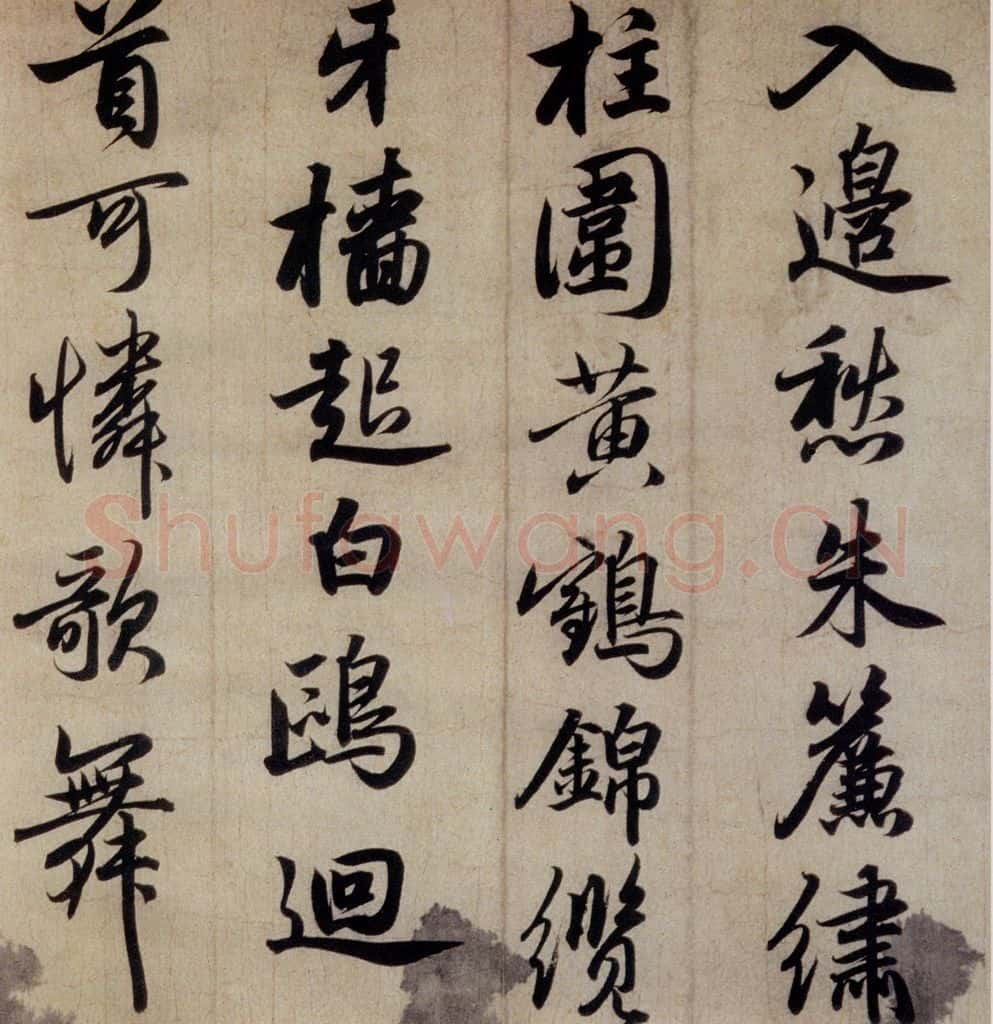 入邊愁朱簾繡
柱圍黃鶴錦纜
牙檣起白鷗迴
首可憐歌舞
Shufawang.CN